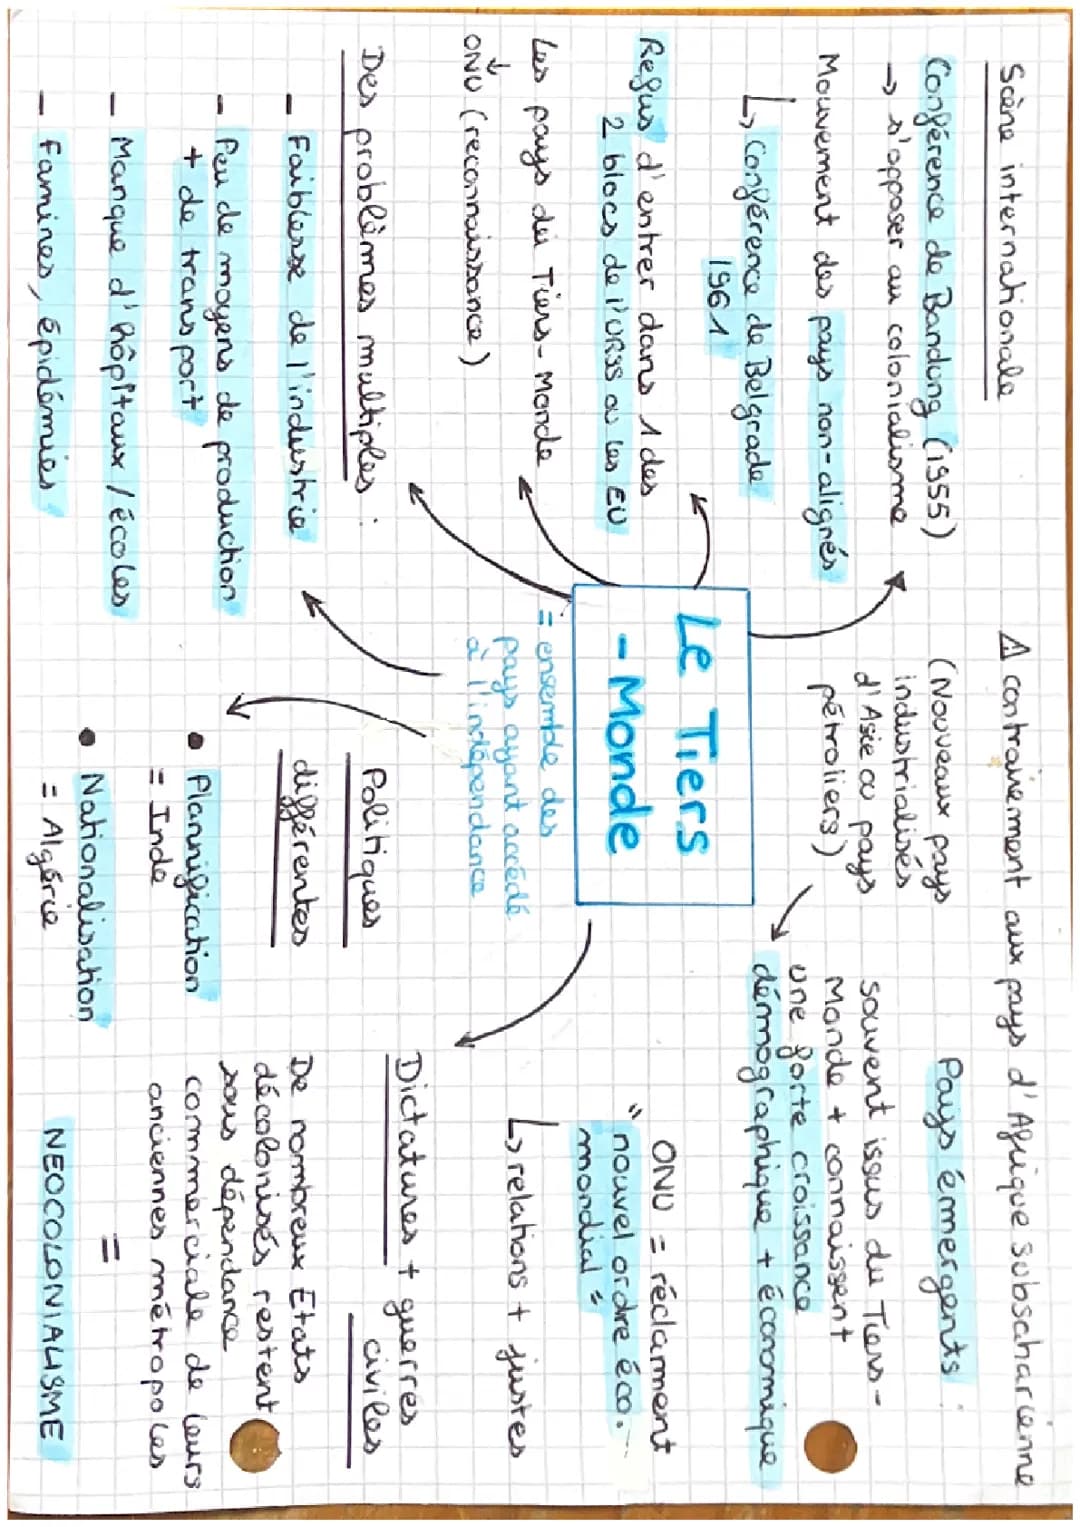 Scène internationale
Conférence de Bandung (1955)
→ s'opposer au colonialisme
Mouvement des pays non-alignés
↳ Conférence de Belgrade
1961
Refus d'entrer dans 1 des
2 blocs de l'URSS ou les EU
Les pays du Tiers-Monde
↓
ONU (reconnaissance)
Des problèmes multiples :
- Faiblesse de l'industrie
- Peu de moyens de production
+ de transport
- Manque d'hôpitaux / écoles
- famines, épidémies
⚠ contrairement aux pays d'Afrique subsaharienne
(Nouveaux pays
industrialisés
d'Asie ou pays
pétroliers)
Le Tiers
-Monde
= ensemble des
pays ayant accédé
à l'indépendance
Politiques
différentes
• Plannification
= Inde
• Nationalisation
= Algérie
Pays émergents :
souvent issus du Tiers-
Monde + connaissent
une forte croissance
démographique + économique
ONU = réclamment
" nouvel ordre éco.
mondial "
↳ relations + justes
Dictatures + guerres
civiles
De nombreux Etats
décolonisés restent
sous dépendance
commerciale de leurs
anciennes métropoles
=
NEOCOLONIALISME